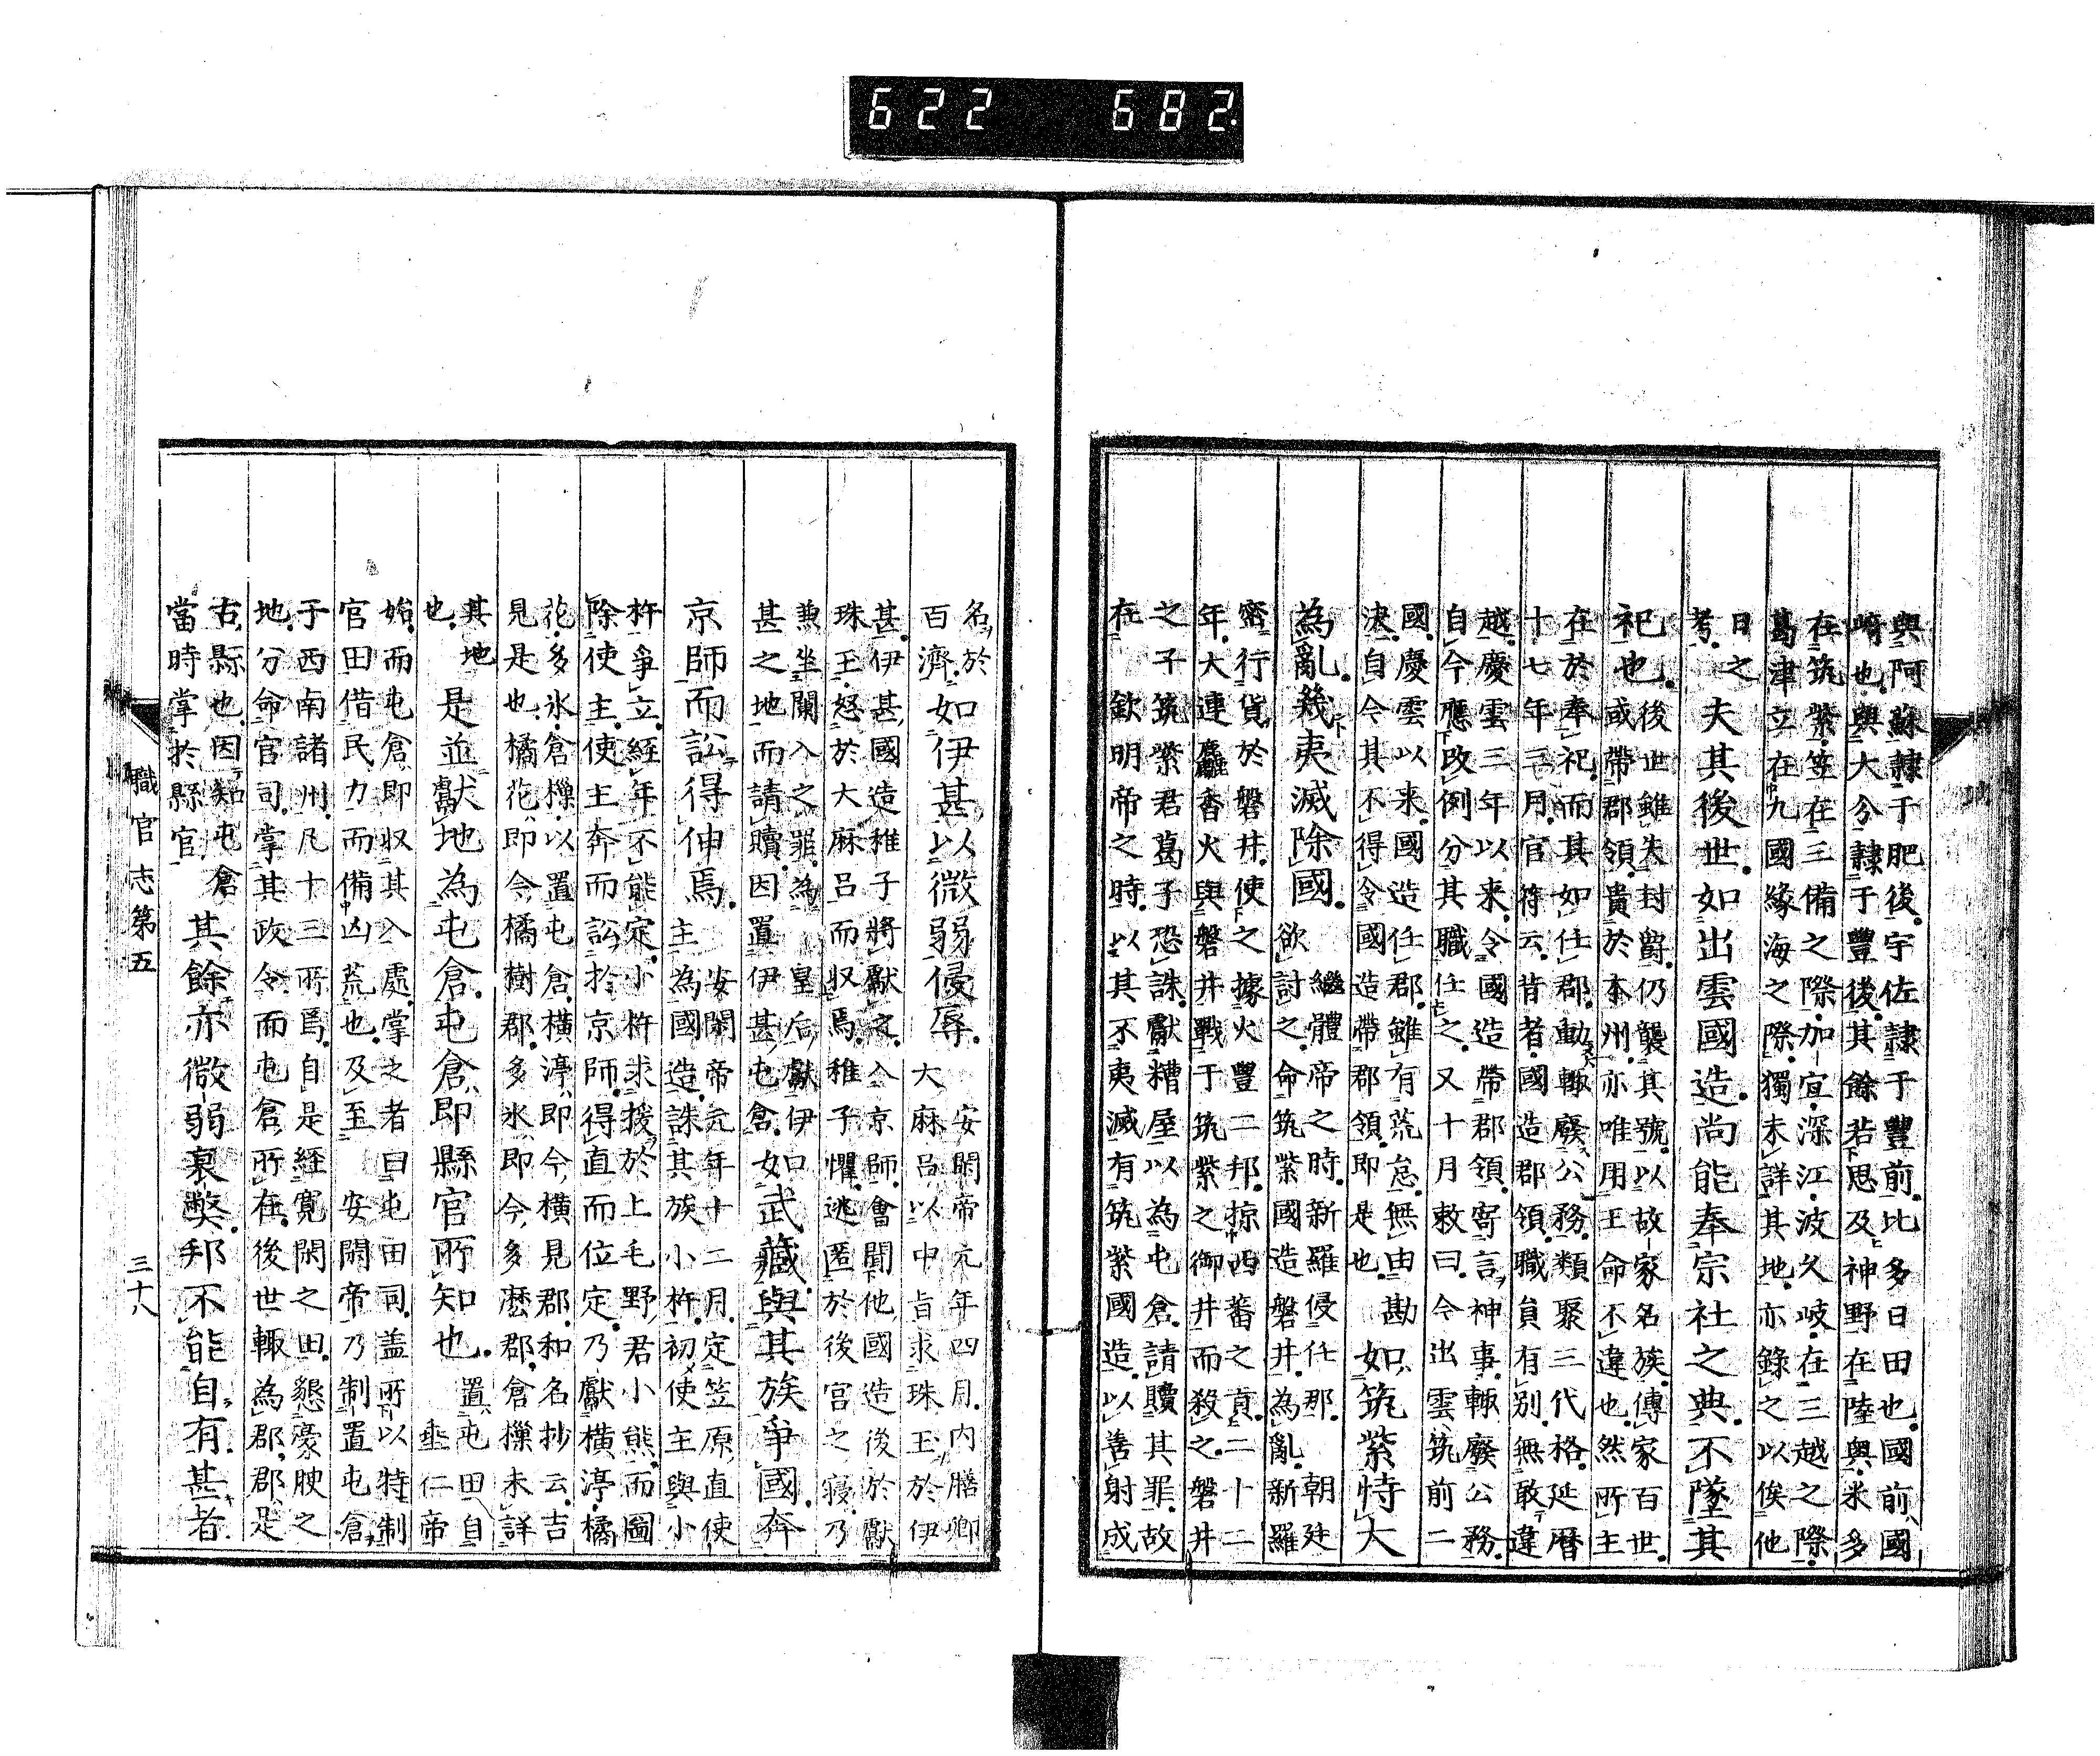 622 682
與阿蘇隷于肥後宇佐隷于豐前比多日田也國前國
嵜也與大分隷于豐後其餘若思及神野在陸與米多
在筑紫笠在三備之際加宜深江波久岐在三越之際
葛津立在九國緣海之際獨未詳其地亦錄之以俟他
日之
考
夫其後世如出雲國造尚能奉宗社之典不墜其
祀也
後世雖失封爵仍襲其號以故家名族傳家百世
或帶郡領貴於本州亦唯用王命不違也然所主
在於奉祀而其如任郡動輙廢公務類聚三代格延曆
十七年三月官符云昔者國造郡領職員有別無敢違
越慶雲三年以来令國造帶郡領寄言神事輙廢公務
自今應改例分其職任之又十月敕曰今出雲筑前二
國慶雲以来國造任郡雖有荒怠無由勘
決自今其不得令國造帶郡領即是也
如筑紫恃大
為亂幾夷滅除國
繼體帝之時新羅侵任那朝廷
欲討之命筑紫國造磐井為亂新羅
密行貨於磐井使之據火豐二邦掠西蕃之貢二十二
年大連麤香火與磐井戰于筑紫之御井而殺之磐井
之子筑紫君葛子恐誅獻糟屋以為屯倉請贖其罪故
在欽明帝之時以其不夷滅有筑紫國造以善射成
名於
百濟
如伊甚以微弱侵辱
安閑帝元年四月內膳卿
大麻呂以中旨求珠玉於伊
甚伊甚國造稚子將獻之入京師會聞他國造後於獻
珠王怒於大麻呂而収焉稚子懼逃匿於後宮之寢乃
兼坐闌入之罪為皇后獻伊
甚之地而請贖因置伊甚屯倉
女武藏與其族爭國奔
京師而訟得伸焉
安閑帝元年十二月定笠原直使
主為國造誅其族小杵初使主與小
杵爭立經年不能定小杵求援於上毛野君小熊而圖
除使主使主奔而訟於京師得直而位定乃獻横渟橘
花多氷倉樔以置屯倉横渟即今横見郡和名抄云吉
見是也橘花即今橘樹郡多氷即今多麽郡倉樔未詳
其地
也
是並獻地為屯倉屯倉即縣官所知也
置屯田自
垂仁帝
始而屯倉即収其入處掌之者曰屯田司盖所以特制
官田借民力而備凶荒也及至安閑帝乃制置屯倉
于西南諸州凡十三所焉自是經寬閑之田懇豪腴之
地分命官司掌其政令而屯倉所在後世輙為郡郡是
古縣也因知屯倉
當時掌於縣官
其餘亦微弱衰弊邦不能自有甚者
職官志第五
三十八